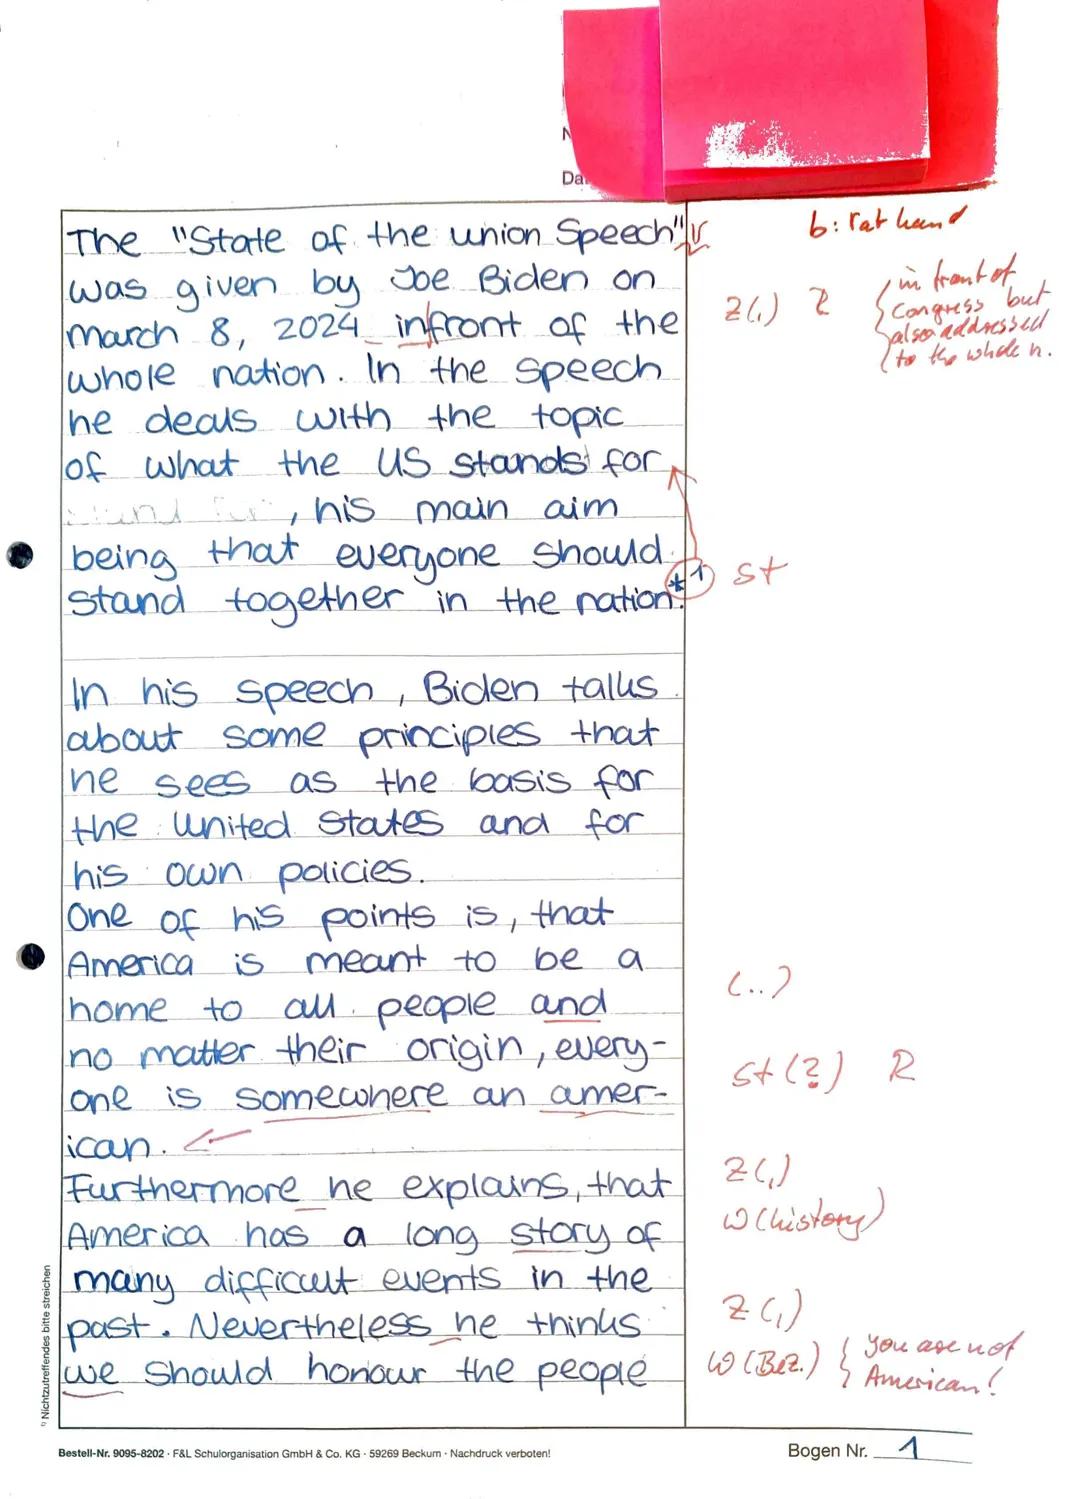 Da
The "State of the union Speech"
b: rat hand
was given by Joe Biden on
march 8, 2024 infront of the
Z(,) R
in front of
Congress but
also addressed
to the whole n.
whole nation. In the speech
he deals with the topic
of what the US stands for
, his main aim
being that everyone should
stand together in the nation.
*1 st
In his speech, Biden talks
about some principles that
he sees as the basis for
the United States and for
his own policies.
One of his points is, that
America is meant to be a
(..)
home to all people and
no matter their origin, every-
st (?) R
one is somewhere an amer-
ican.
Furthermore he explains, that
Z(,)
America has a long story of
W (history)
many difficult events in the
past. Nevertheless he thinks
Z(,)
we should honour the people
W (Bez.)
you are not
American!
¹⁾ Nichtzutreffendes bitte streichen
Bestell-Nr. 9095-8202 · F&L Schulorganisation GmbH & Co. KG · 59269 Beckum · Nachdruck verboten!
Bogen Nr. 1